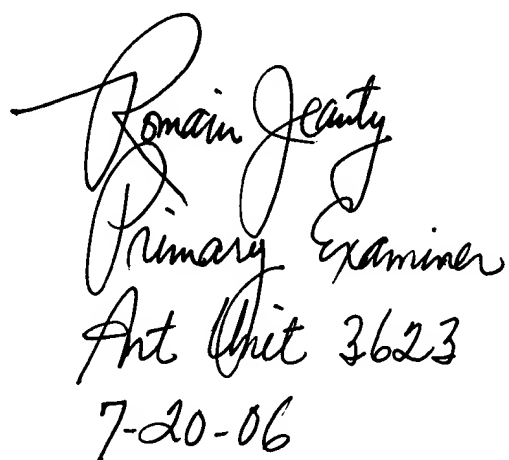 Romain Jeanty
Primary Examiner
Art Unit 3623
7-20-06